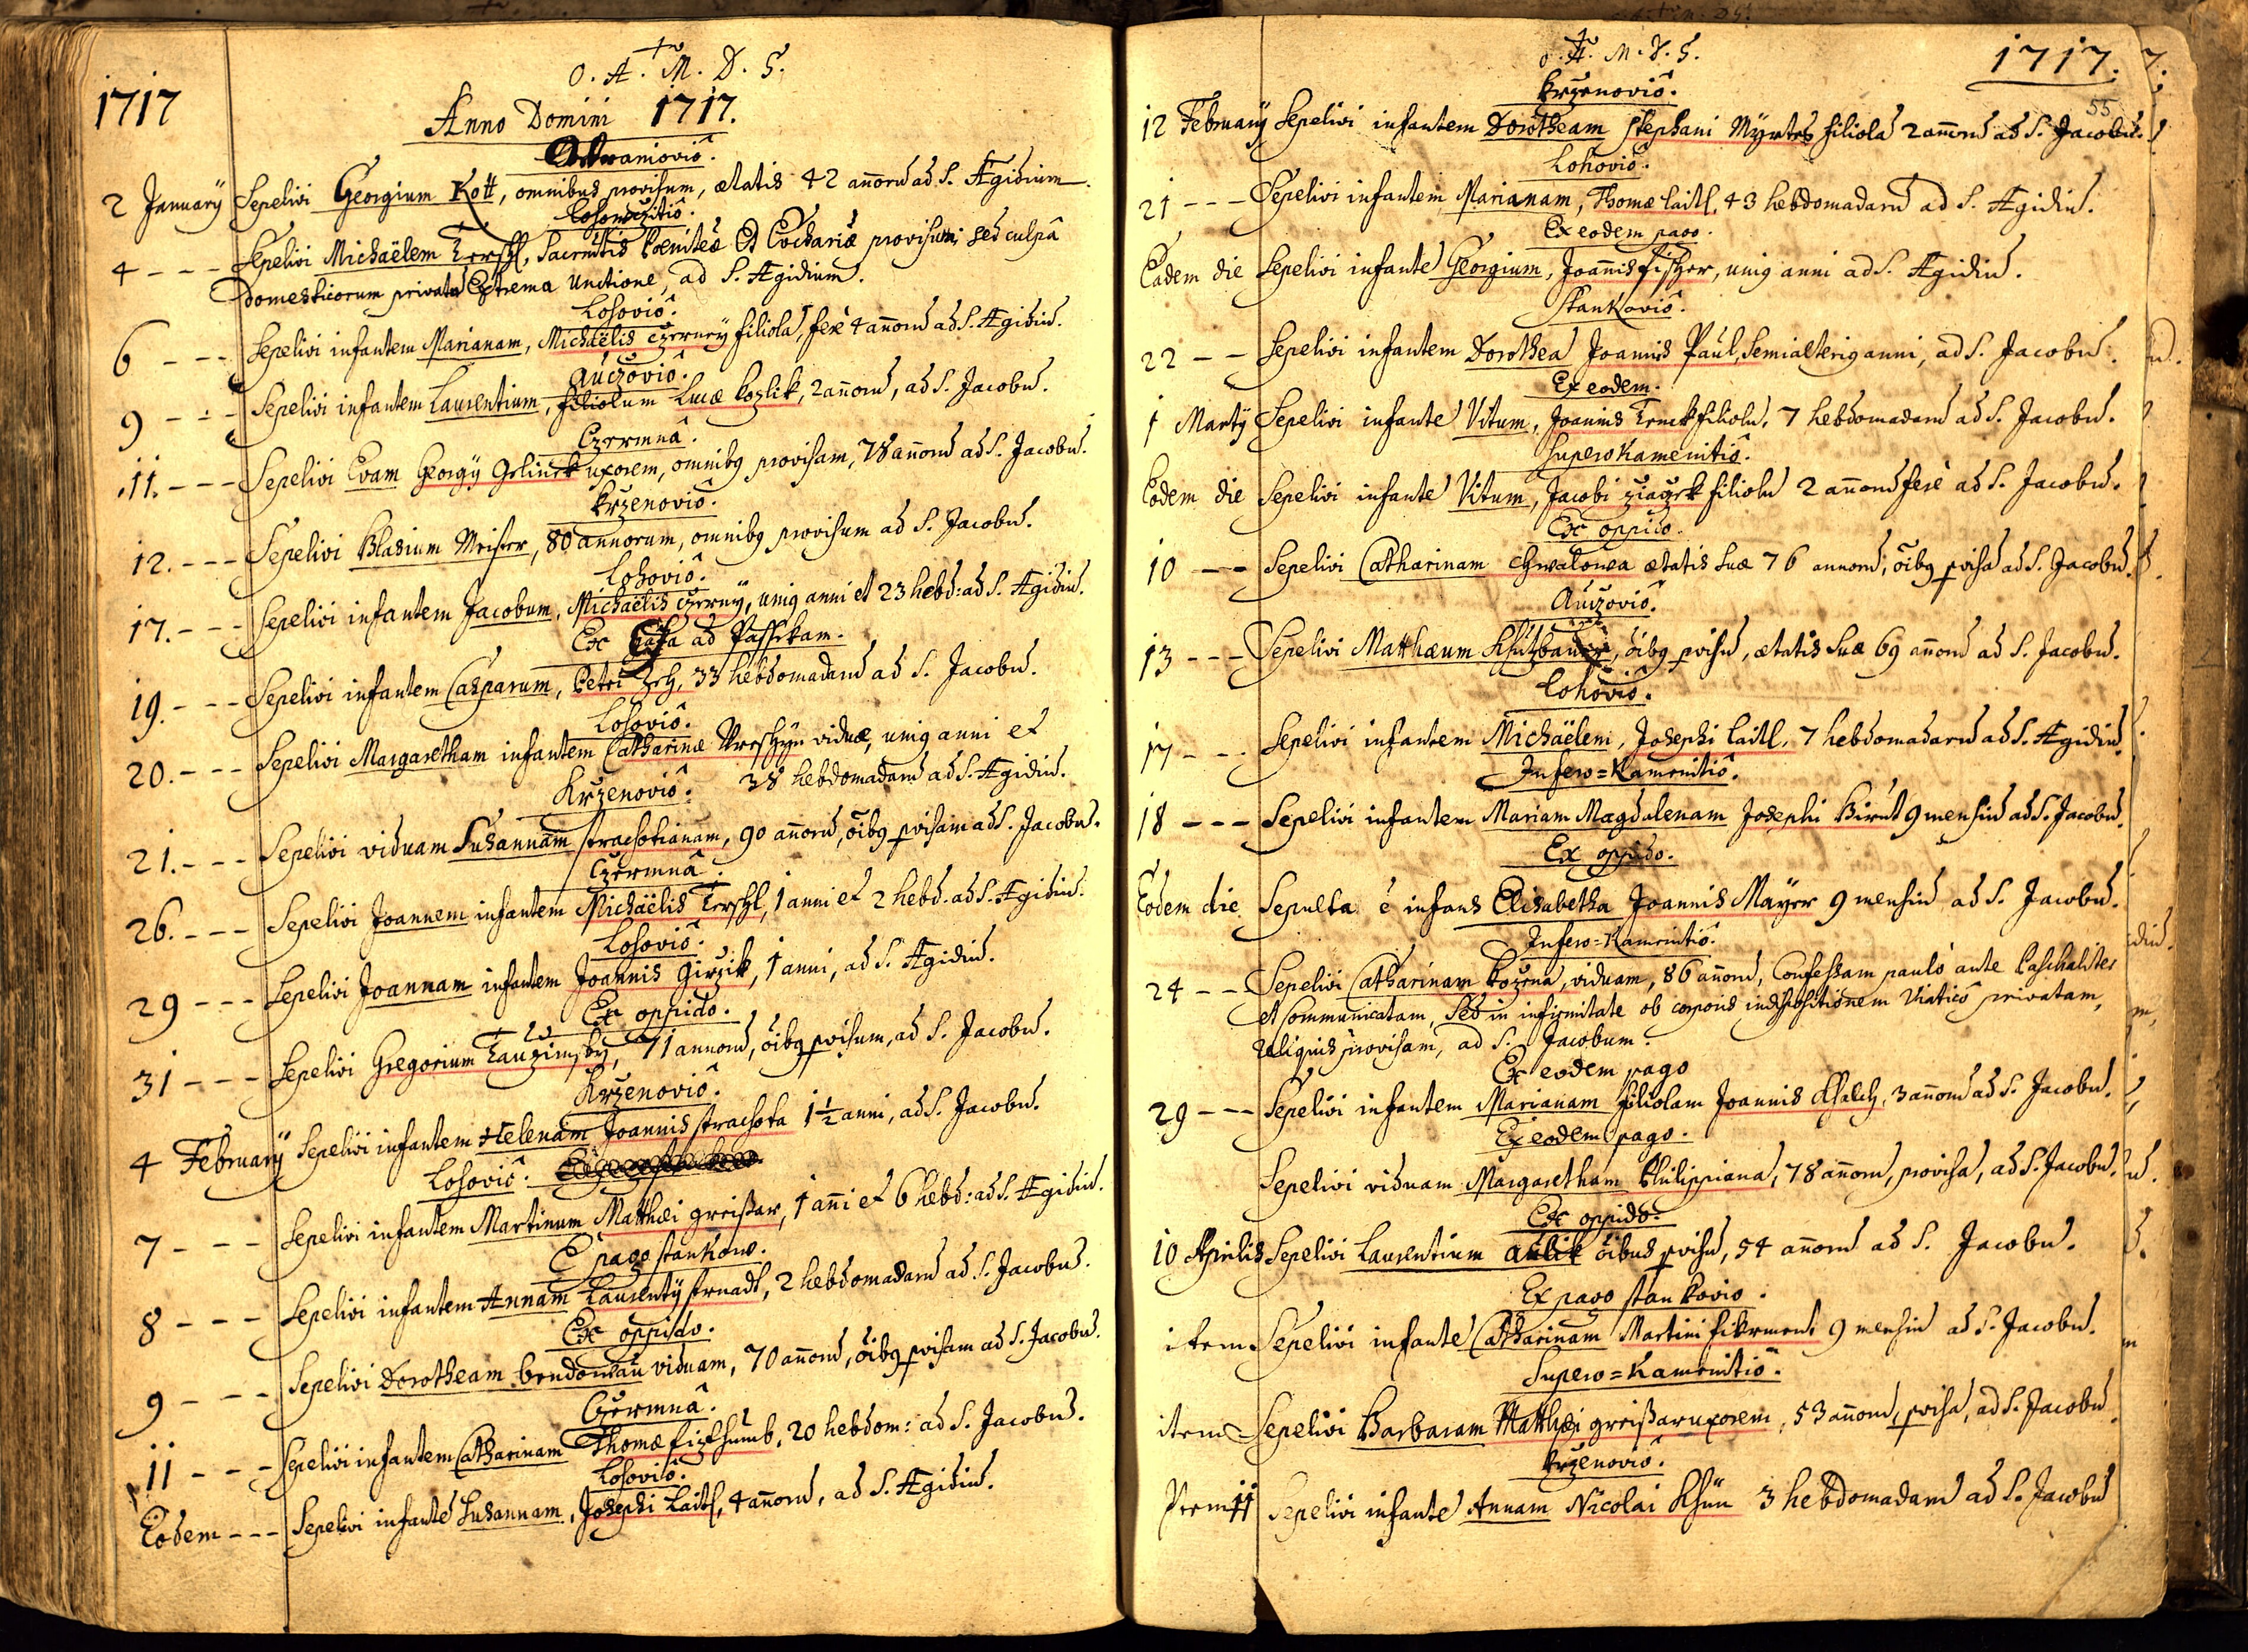 O. A. M. D. G.
1717
Anno Domini 1717.
2 Januarÿ Sepelivi Georgium Kott, omnibus provisum, ætatis 42 añorũ ad S. Ægidium.
4 - - - Sepelivi Michaëlem Terschl, Sacrmtis Poeniteæ Et Evchariæ provisum; sed culpâ
Domesticorum privatũ Extrema Unctione, ad S. Ægidium.
Lohoviô.
6 - - - Sepelivi infantem Marianam, Michaëlis Czerney filiolã, ferè 4 añorũ ad S. Ægidiũ.
Auczoviô.
9 - - - Sepelivi infantem Laurentium, filiolum Lucæ Kozlik, 2 añorũ, ad S. Jacobũ.
Czermnâ.
11. - - - Sepelivi Evam Georgÿ Gelineck uxorem, omnibꝫ provisam, 78 añorũ ad S. Jacobũ.
Krzenoviô.
12. - - - Sepelivi Blasium Meister, 80 annorum, omnibꝫ provisum ad S. Jacobũ.
Lohoviô.
17. - - - Sepelivi infantem Jacobum, Michaëlis Czernÿ, uniꝫ anni et 23 hebd: ad S. Ægidiũ.
Ex Casa ad Passekam.
19. - - - Sepelivi infantem Casparum, Petri Zeh, 33 hebdomadarũ ad S. Jacobũ.
Lohoviô.
20. - - - Sepelivi Margaretham infantem Catharinæ viduæ, uniꝫ anni et
38 hebdomadarũ ad S. Ægidiũ.
Krzenoviô.
21. - - - Sepelivi viduam Susannam strachotianam, 90 añorũ, õibꝫ pvisam ad S. Jacobũ.
Czermnâ.
26. - - - Sepelivi Joannem infantem Michaëlis Terschl, 1 anni et 2 hebd. ad S. Ægidiũ.
Lohoviô.
29 - - - Sepelivi Joannam infantem Joannis Girzik, 1 anni, ad S. Ægidiũ.
Ex oppido.
31 - - - Sepelivi Gregorium 71 annorũ, õibꝫ pvisum, ad S. Jacobũ.
Krzenoviô.
4 Februarÿ Sepelivi infantem Helenam Joannis strachota 1½ anni, ad S. Jacobũ.
Lohoviô.
7 - - - Sepelivi infantem Martinum Matthæi greißar, 1 añi et 6 hebd: ad S. Ægidiũ.
E pago stankow.
8 - - - Sepelivi infantem Annam Laurentÿ strnadt, 2 hebdomadarũ ad S. Jacobũ.
Ex oppido.
9 - - - Sepelivi Dorotheam viduam, 70 añorũ, õibꝫ pvisam ad S. Jacobũ.
Czermnâ.
11 - - - Sepelivi infantem Catharinam Thomæ 20 hebdom: ad S. Jacobũ.
Lohoviô.
Eodem - - - Sepelivi infantẽ Susannam, Josephi Laitl, 4 añorũ, ad S. Ægidiũ.
O. A. M. D. G.
1717.
55
Krzenoviô.
12 Februarÿ Sepelivi infantem Dorotheam Stephani Mÿrtes filiolã 2 añorũ ad S. Jacobũ.
Lohoviô.
21 - - - Sepelivi infantem Marianam, Thomæ Laitl, 43 hebdomadarũ ad S. Ægidiũ.
Ex eodem pago.
Eadem die Sepelivi infantẽ Georgium, Joannis fischer, uniꝫ anni ad S. Ægidiũ.
Stankoviô.
22 - - Sepelivi infantem Dorotheã Joannis Paul, Semialteriꝫ anni, ad S. Jacobũ.
Ex eodem.
1 Martÿ Sepelivi infantẽ Vitum, Joannis Trnck filiolũ, 7 hebdomadarũ ad S. Jacobũ.
Supero Kamenitiô.
Eodem die Sepelivi infantẽ Vitum, Jacobi filiolũ 2 añorũ ferè ad S. Jacobũ.
Ex oppido.
10 - - Sepelivi Catharinam Chwalowa ætatis suæ 76 annorũ, õibꝫ pvisã ad S. Jacobũ.
Auczoviô.
13 - - - Sepelivi Matthæum õibꝫ pvisũ, ætatis suæ 69 añorũ ad S. Jacobũ.
Lohoviô.
17 - - Sepelivi infantem Michaëlem, Josephi Laitl, 7 hebdomadarũ ad S. Ægidiũ.
Infero=Kamenitiô.
18 - - - Sepelivi infantem Mariam Magdalenam Josephi Birnt 9 mensiũ ad S. Jacobũ.
Ex oppido.
Eodem die Sepulta ẽ infans Elisabetha Joannis Mayer 9 mensiũ ad S. Jacobũ.
Infero=Kamenitiô.
24 - - Sepelivi Catharinam Kozena, viduam, 86 añorũ, Confessam paulò ante Paschaliter
et Communicatam, Sed in infirmitate ob corporis indispositionem Viaticô privatam,
reliquis provisam, ad S. Jacobum.
Ex eodem pago
29 - - - Sepelivi infantem Marianam filiolam Joannis 3 añorũ ad S. Jacobũ.
Ex eodem pago.
Sepelivi viduam Margaretham Philippianã, 78 añorũ, provisã, ad S. Jacobũ.
Ex oppido.
10 Aprilis Sepelivi Laurentium Aulik õibus pvisũ, 54 añorũ ad S. Jacobũ.
Ex pago stankovio.
item Sepelivi infantẽ Catharinam Martini 9 mensiũ ad S. Jacobũ.
Supero=Kamenitiô.
item Sepelivi Barbaram Matthæi greißar uxorem, 53 añorũ, pvisã, ad S. Jacobũ.
Krzenoviô.
Item 11 Sepelivi infantẽ Annam Nicolai Khün 3 hebdomadarũ ad S. Jacobũ